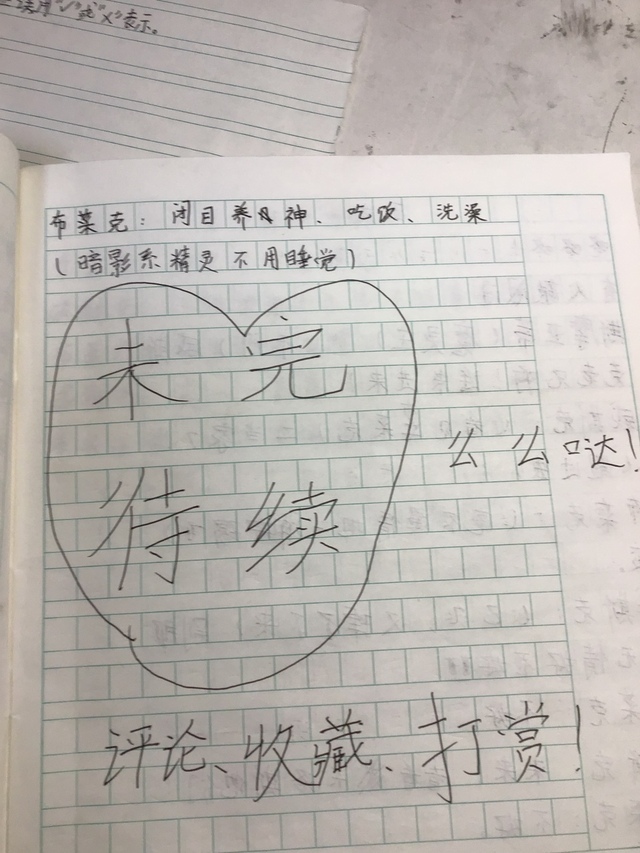 用"√"或"×"表示。
布莱克：闭目养神、吃饭、洗澡
（暗影系精灵不用睡觉）
未完
么么哒！
待续
评论、收藏、打赏！